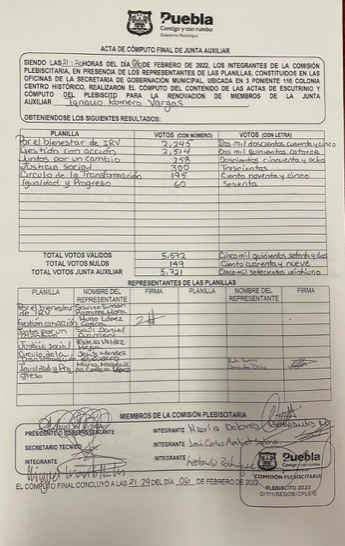 Puebla
Contigo y con rumbo
Gobierno Municipal
ACTA DE CÓMPUTO FINAL DE JUNTA AUXILIAR
SIENDO LAS 21:20 HORAS DEL DÍA 06 DE FEBRERO DE 2022, LOS INTEGRANTES DE LA COMISIÓN
PLEBISCITARIA, EN PRESENCIA DE LOS REPRESENTANTES DE LAS PLANILLAS, CONSTITUIDOS EN LAS
OFICINAS DE LA SECRETARIA DE GOBERNACIÓN MUNICIPAL, UBICADA EN 3 PONIENTE 116 COLONIA
CENTRO HISTÓRICO, REALIZARON EL CÓMPUTO DEL CONTENIDO DE LAS ACTAS DE ESCRUTINIO Y
CÓMPUTO DEL PLEBISCITO PARA LA RENOVACIÓN DE MIEMBROS DE LA JUNTA
AUXILIAR Ignacio Romero Vargas
OBTENIENDOSE LOS SIGUIENTES RESULTADOS:
PLANILLA VOTOS (CON NÚMERO) VOTOS (CON LETRA)
Por el bienestar de IRV 2,245 Dos mil doscientos cuarenta y cinco
Gestión con acción 2,514 Dos mil quinientos catorce
Juntos por un cambio 258 Doscientos cincuenta y ocho
Justicia social 300 Trescientos
Circulo de la Transformación 195 Ciento noventa y cinco
Igualdad y Progreso 60 Sesenta
TOTAL VOTOS VÁLIDOS 5,572 Cinco mil quinientos setenta y dos
TOTAL VOTOS NULOS 149 Ciento cuarenta y nueve
TOTAL VOTOS JUNTA AUXILIAR 5,721 Cinco mil setecientos veintiuno
REPRESENTANTES DE LAS PLANILLAS
PLANILLA NOMBRE DEL REPRESENTANTE FIRMA PLANILLA NOMBRE DEL REPRESENTANTE FIRMA
Por el bienestar de IRV Simon
Gestion con acción Hugo López
Juntos por un Saúl Daniel
Justicia social Estela Valdez
Circulo de la Jesús
Igualdad y Progreso
MIEMBROS DE LA COMISIÓN PLEBISCITARIA
PRESIDENTE O REPRESENTANTE INTEGRANTE María Dolores
SECRETARIO TÉCNICO INTEGRANTE José Carlos
INTEGRANTE INTEGRANTE Antonio
EL CÓMPUTO FINAL CONCLUYÓ A LAS 21:29 DEL DÍA 06 DE FEBRERO DE 2022
Puebla
Contigo y con rumbo
Gobierno Municipal
COMISIÓN PLEBISCITARIA
PLEBISCITO 2022
O/111/SEGOB/CPLETE